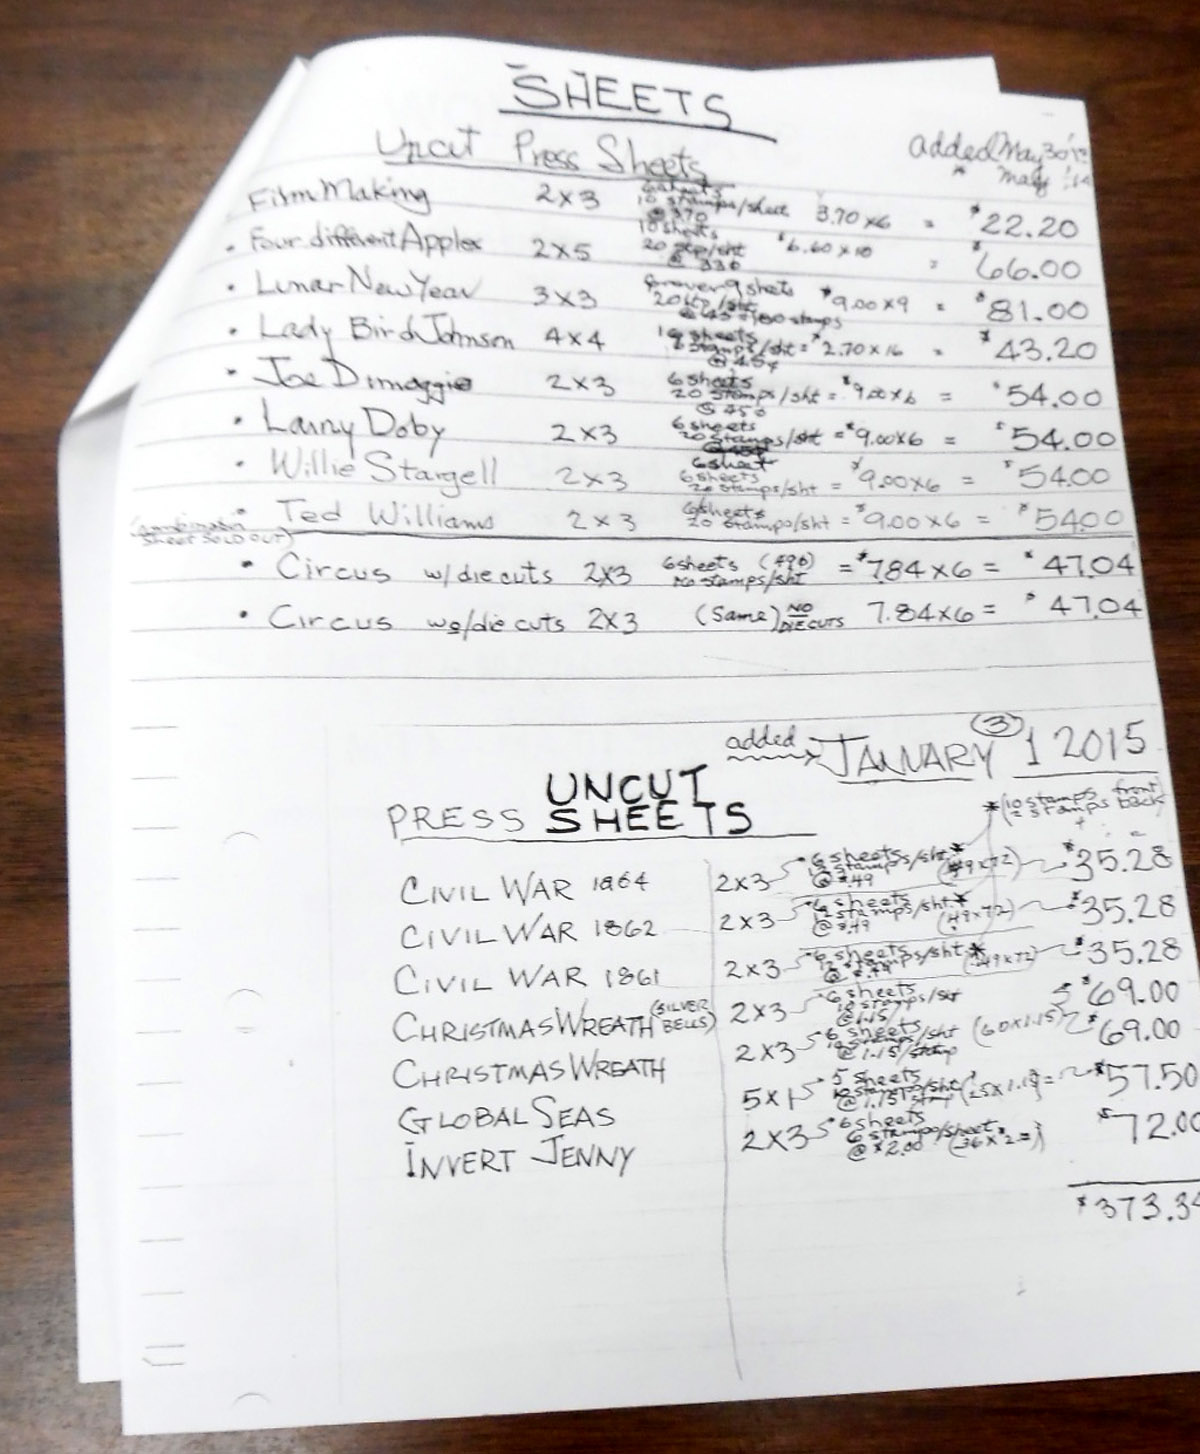 SHEETS
Uncut Press Sheets
added May 30 '12
Film Making 2x3 6 sheets 10 stamps/sheet @ 370 3.70 x 6 = $22.20
• Four different Apples 2x5 10 sheets 20 stp/sht @ 336 $6.60 x 10 = $66.00
• Lunar New Year 3x3 forever 9 sheets $9.00 x 9 = $81.00
• Lady Bird Johnson 4x4 16 sheets stamps/sht = $2.70 x 16 = $43.20
@ 45¢
• Joe Dimaggio 2x3 6 sheets 20 stamps/sht = $9.00 x 6 = $54.00
@ 45¢
• Larry Doby 2x3 6 sheets 20 stamps/sht = $9.00 x 6 = $54.00
• Willie Stargell 2x3 6 sheet 6 sheets 20 stamps/sht = $9.00 x 6 = $54.00
• Ted Williams 2x3 6 sheets 20 stamps/sht = $9.00 x 6 = $54.00
(combination sheet SOLD OUT)
• Circus w/die cuts 2x3 6 sheets (49¢) stamps/sht = $7.84 x 6 = $47.04
• Circus wo/die cuts 2x3 (Same) NO DIE CUTS 7.84 x 6 = $47.04
added JANUARY (3) 1 2015
PRESS UNCUT SHEETS
*(10 stamps front 2 stamps back
CIVIL WAR 1864 2x3 6 sheets 12 stamps/sht * @ .49 (.49 x 72) $35.28
CIVIL WAR 1862 2x3 6 sheets 12 stamps/sht * @ .49 (.49 x 72) $35.28
CIVIL WAR 1861 2x3 6 sheets 12 stamps/sht * @ .49 (.49 x 72) $35.28
CHRISTMAS WREATH (SILVER BELLS) 2x3 6 sheets 10 stamps/sht @ 1.15/ $69.00
CHRISTMAS WREATH 2x3 6 sheets 10 stamps/sht @ 1.15/stamp (60 x 1.15) $69.00
GLOBAL SEAS 5x1 5 sheets 10 stamps/sht @ 1.15/stamp = $57.50
INVERT JENNY 2x3 6 sheets 6 stamps/sheet @ $2.00 (36 x $2 =) $72.00
$373.34